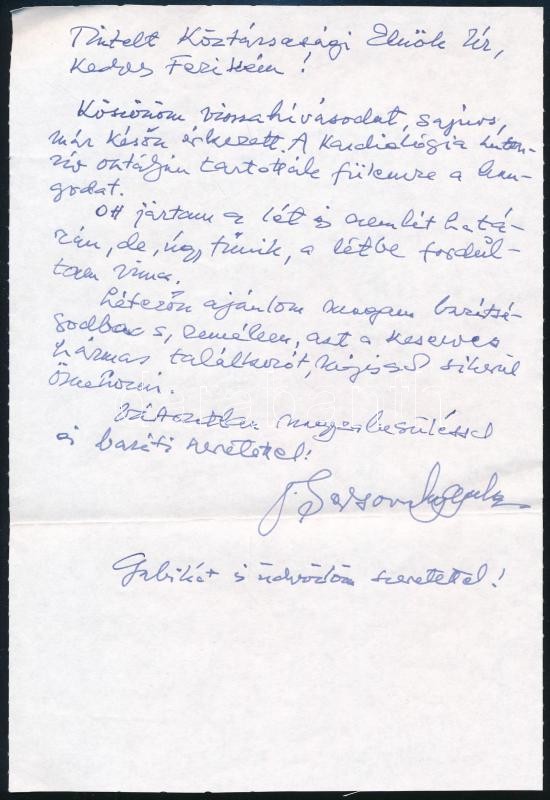 Tisztelt Köztársasági Elnök Úr,
Kedves Ferikém!
Köszönöm visszahívásodat, sajnos,
már későn érkezett. A Kardiológia Inten-
zív osztályán tartották fülemre a han-
godat.
Ott jártam a lét és nemlét hatá-
rán, de, úgy tűnik, a létbe fordul-
tam vissza.
Létezőn ajánlom magam baráts-
godba s, remélem, azt a keserves
hármas találkozót, mégis sikerül
összehozni.
Változatlan nagyrabecsüléssel
és baráti szeretettel!
Gabikát is üdvözlöm szeretettel!